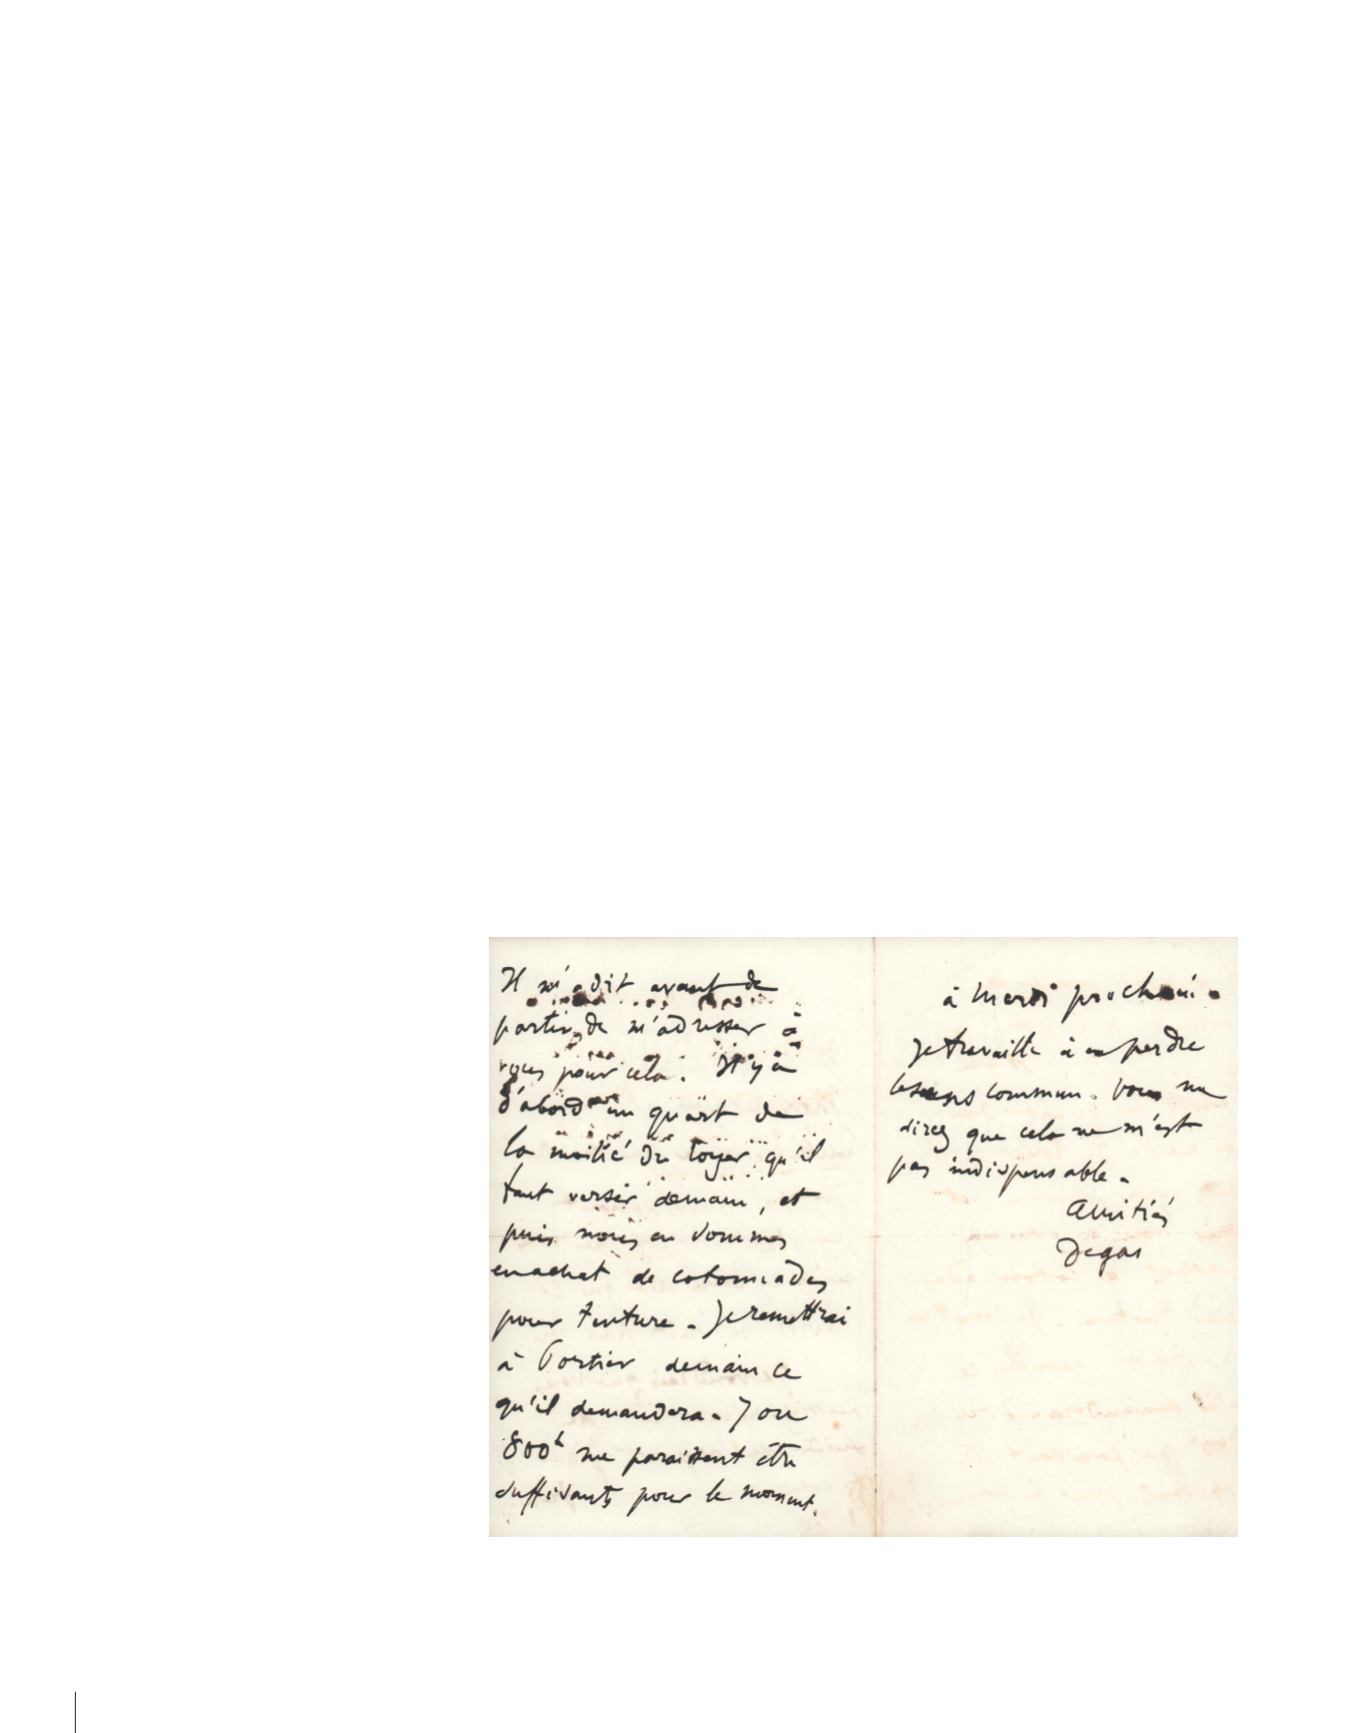 Il m'a dit avant de
partir, de m'adresser à
vous pour cela. Il y a
d'abord un quart de
la moitié du loyer qu'il
faut verser demain, et
puis nous en sommes
en achat de cotonnades
pour tenture. Je remettrai
à Portier demain ce
qu'il demandera. 7 ou
800 me paraissent être
suffisants pour le moment.
à Mardi prochain.
Je travaille à en perdre
le sens commun. Vous me
direz que cela ne m'est
pas indispensable.
Amitiés
Degas